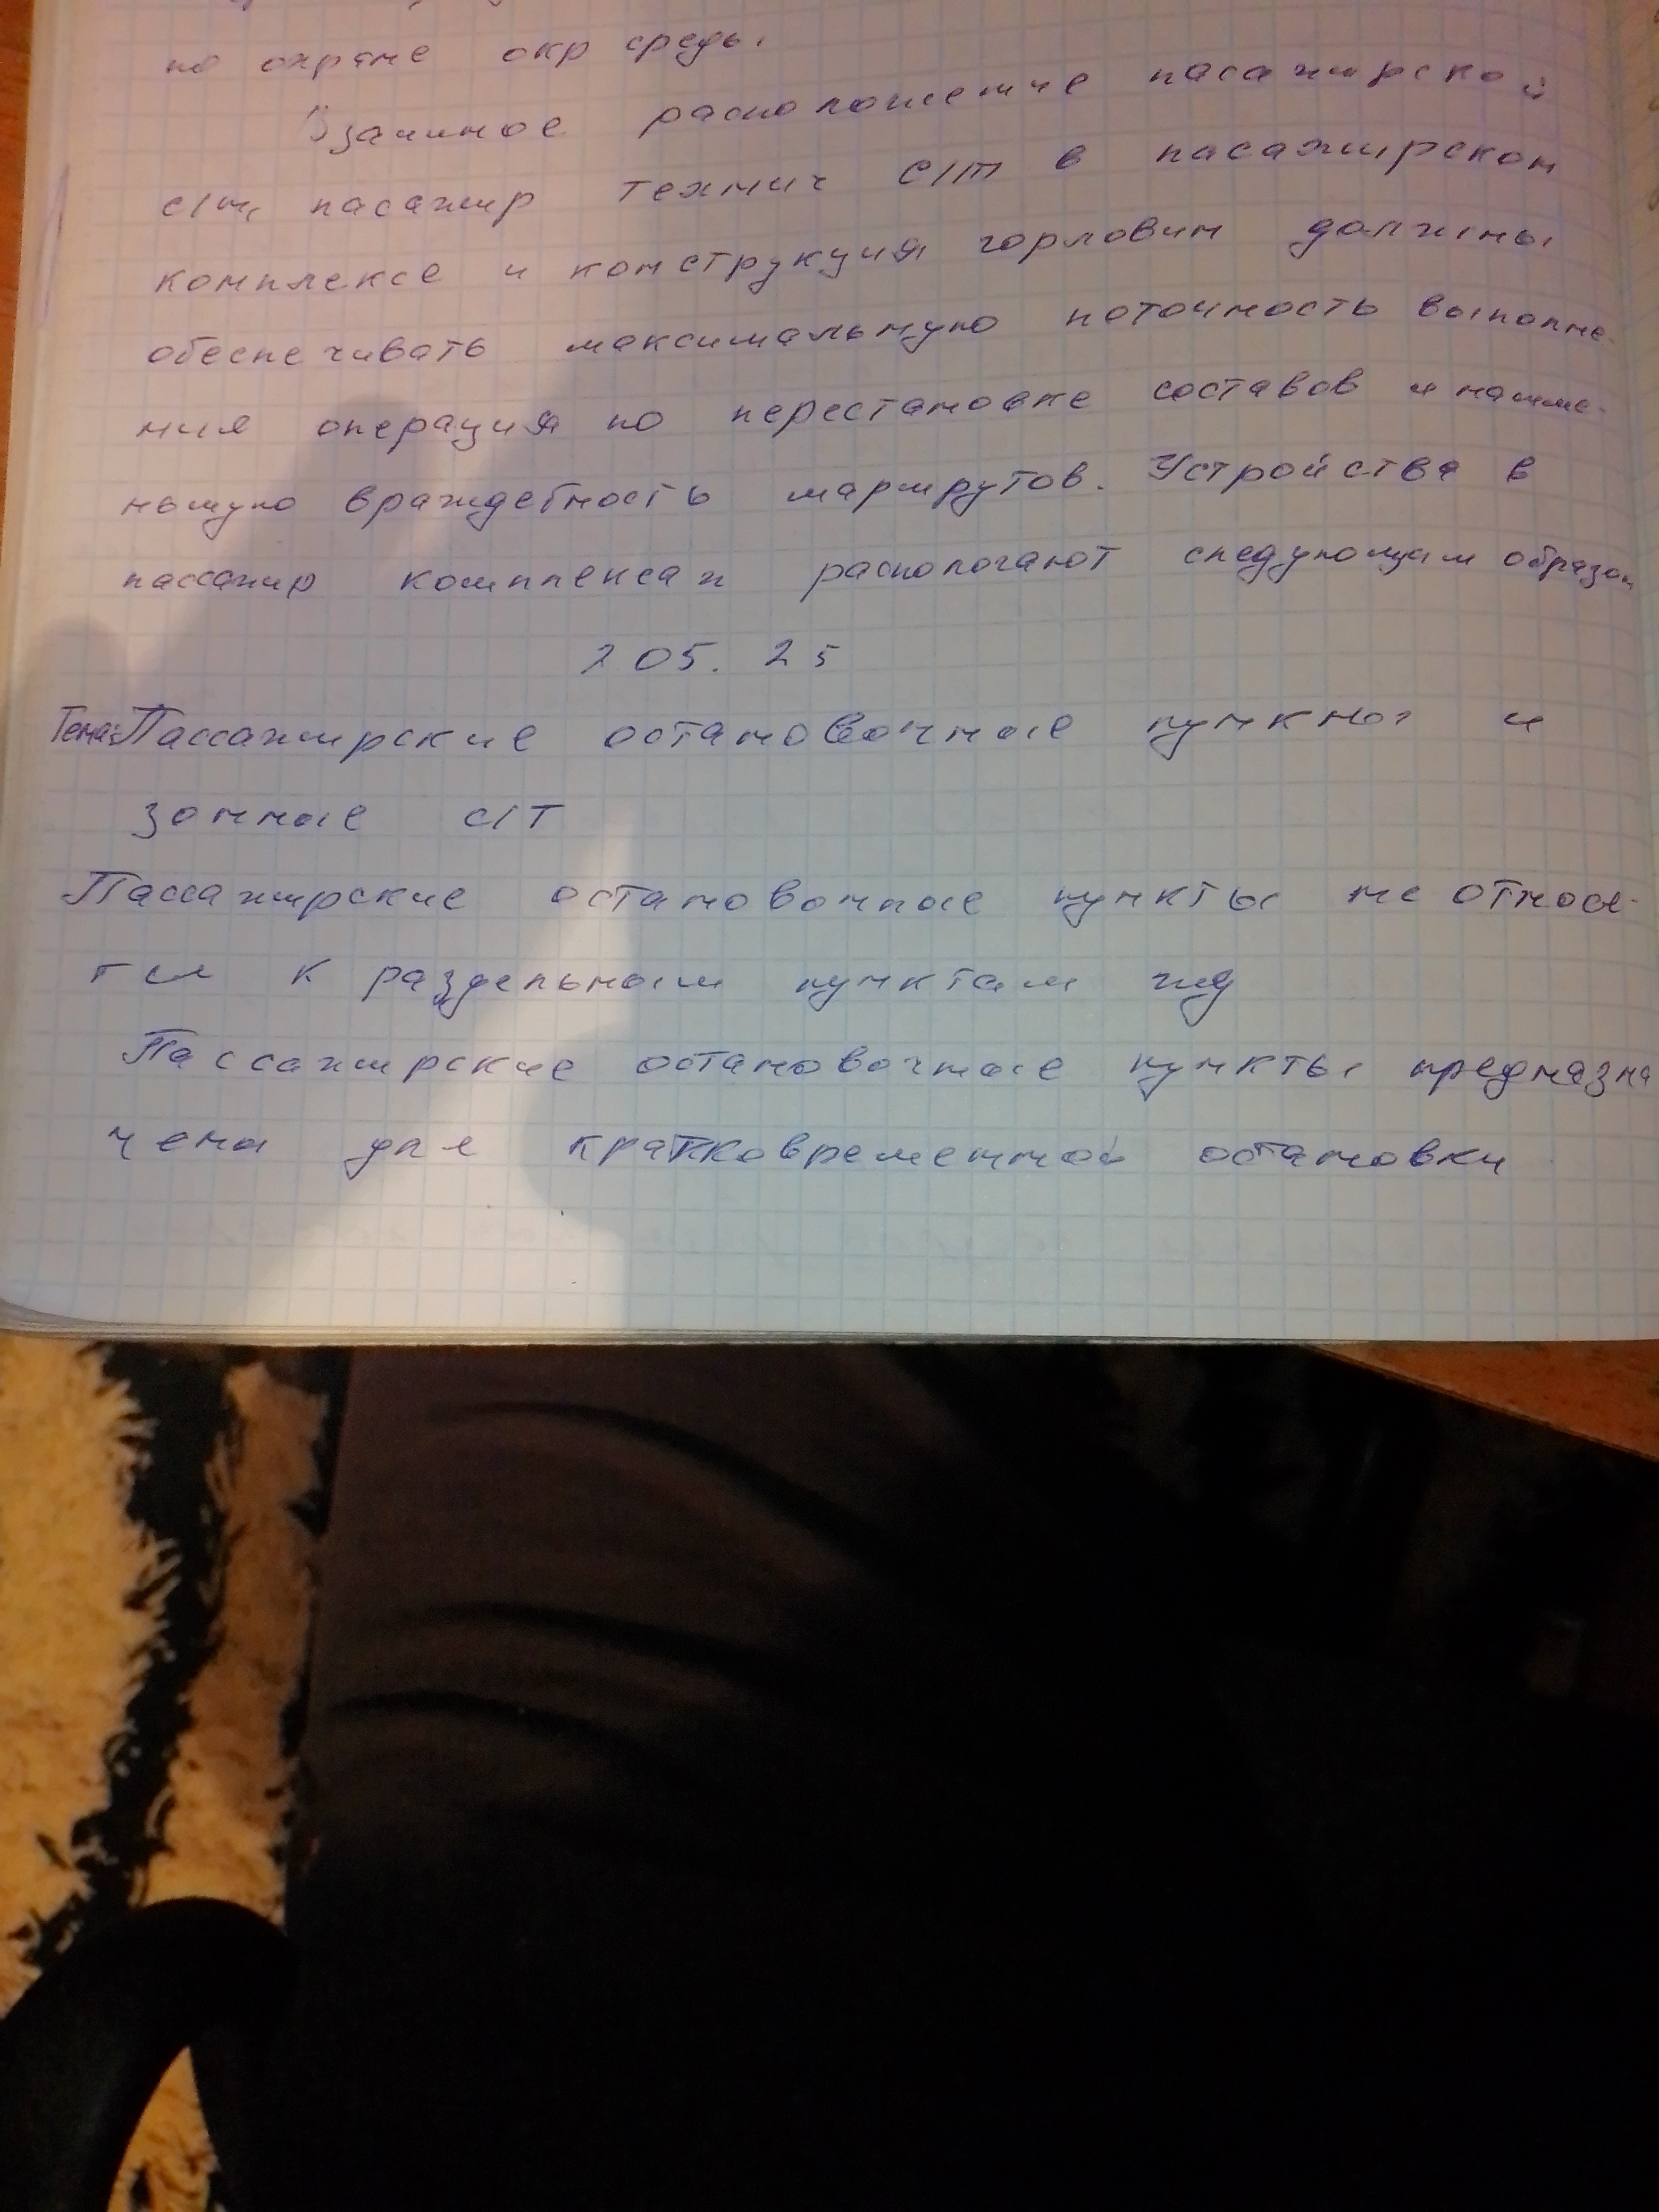 по охране окр среды.
Взаимное расположение пасажирской
с/т, пасажир технич с/т в пасажирском
комплексе и конструкция горловин должны
обеспечивать максимальную поточность выполне-
ния операция по перестановке составов и наиме-
ньшую враждебность маршрутов. Устройства в
пассажир комплексах распологают следующим образом
205. 25
Тема: Пассажирские остановочные пункты и
зонные с/т
Пассажирские остановочные пункты не относя-
тся к раздельным пунктам жд
Пассажирские остановочные пункты предназна
чены для кратковременной остановки